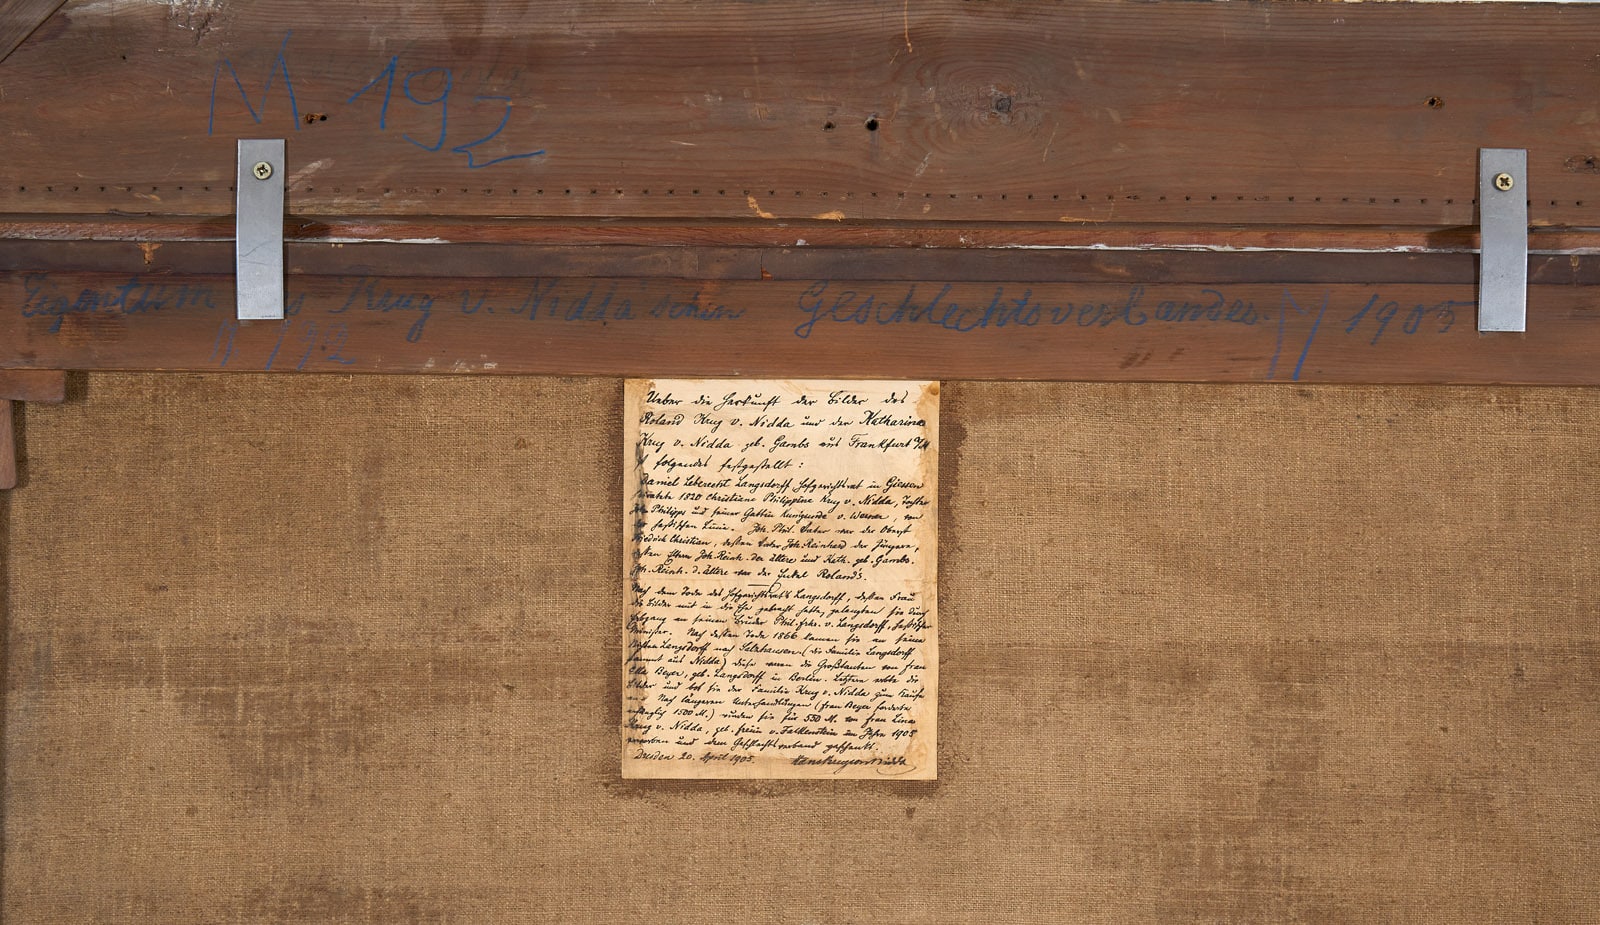 M 192
Eigentum Krug v. Nidda'schen Geschlechtsverbandes. M 1905
M 192
Ueber die Herkunft der Bilder des
Roland Krug v. Nidda und der Katharina
Krug v. Nidda geb. Gambs aus Frankfurt a/M
folgendes festgestellt:
Daniel Leberecht Langsdorff Hofgerichtsrat in Giessen
heiratete 1820 Christiane Philippine Krug v. Nidda, Tochter
Joh. Philipps und seiner Gattin Kunigunde v. , von
der hessischen Linie. Joh. Phil. Vater war der Oberst
Friedrich Christian, dessen Vater Joh. Reinhard der Jüngere,
dessen Eltern Joh. Reinh. der ältere und Kath. geb. Gambs.
Joh. Reinh. d. ältere war der Enkel Roland's.
Nach dem Tode des Hofgerichtsrat's Langsdorff, dessen Frau
die Bilder mit in die Ehe gebracht hatte, gelangten sie durch
Erbgang an seinen Bruder Phil. Frhr. v. Langsdorff, hessischer
Minister. Nach dessen Tode 1866 kamen sie an seine
Nichten Langsdorff nach Salzhausen (die Familie Langsdorff
stammt aus Nidda) diese waren die Großtanten von Frau
Beyer, geb. Langsdorff in Berlin. Letztere erbte die
Bilder und bot sie der Familie Krug v. Nidda zum Kaufe
an. Nach längeren Unterhandlungen (Frau Beyer forderte
anfänglich 1500 M.) wurden sie für 550 M. von Frau Lina
Krug v. Nidda, geb. Freiin v. Falkenstein im Jahre 1905
erworben und dem Geschlechtsverband geschenkt.
Dresden 20. April 1905. Hans Krug von Nidda